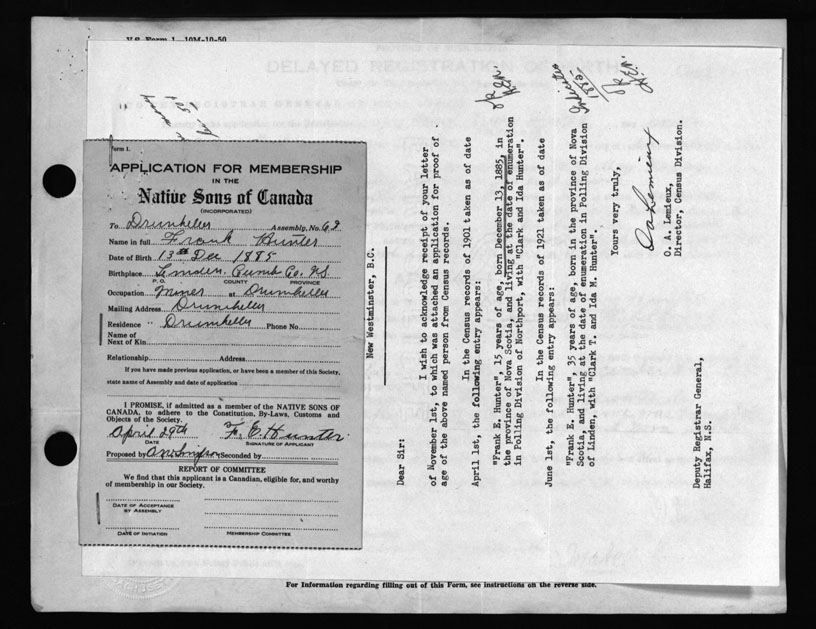 U.S. Form 1—10M-10-50
DELAYED REGISTRATION OF BIRTH
Form 1.
APPLICATION FOR MEMBERSHIP
IN THE
Native Sons of Canada
(INCORPORATED)
To Drumheller Assembly, No. 62
Name in full Frank Hunter
Date of Birth 13th Dec 1885
Birthplace Linden Cumb Co. N.S.
P.O. COUNTY PROVINCE
Occupation Miner at Drumheller
Mailing Address Drumheller
Residence Drumheller Phone No.
Name of
Next of Kin
Relationship Address
If you have made previous application, or have been a member of this Society,
state name of Assembly and date of application
I PROMISE, if admitted as a member of the NATIVE SONS OF
CANADA, to adhere to the Constitution, By-Laws, Customs and
Objects of the Society.
April 29th F. E. Hunter
DATE SIGNATURE OF APPLICANT
Proposed by Seconded by
REPORT OF COMMITTEE
We find that this applicant is a Canadian, eligible for, and worthy
of membership in our Society.
DATE OF ACCEPTANCE
BY ASSEMBLY
DATE OF INITIATION MEMBERSHIP COMMITTEE
New Westminster, B.C.
Dear Sir:
I wish to acknowledge receipt of your letter
of November 1st, to which was attached an application for proof of
age of the above named person from Census records.
In the Census records of 1901 taken as of date
April 1st, the following entry appears:
"Frank E. Hunter", 15 years of age, born December 13, 1885, in
the province of Nova Scotia, and living at the date of enumeration
in Polling Division of Northport, with "Clark and Ida Hunter".
In the Census records of 1921 taken as of date
June 1st, the following entry appears:
"Frank E. Hunter", 35 years of age, born in the province of Nova
Scotia, and living at the date of enumeration in Polling Division
of Linden, with "Clark T. and Ida M. Hunter".
Yours very truly,
O. A. Lemieux
O. A. Lemieux,
Director, Census Division.
Deputy Registrar General,
Halifax, N.S.
For Information regarding filling out of this Form, see instructions on the reverse side.